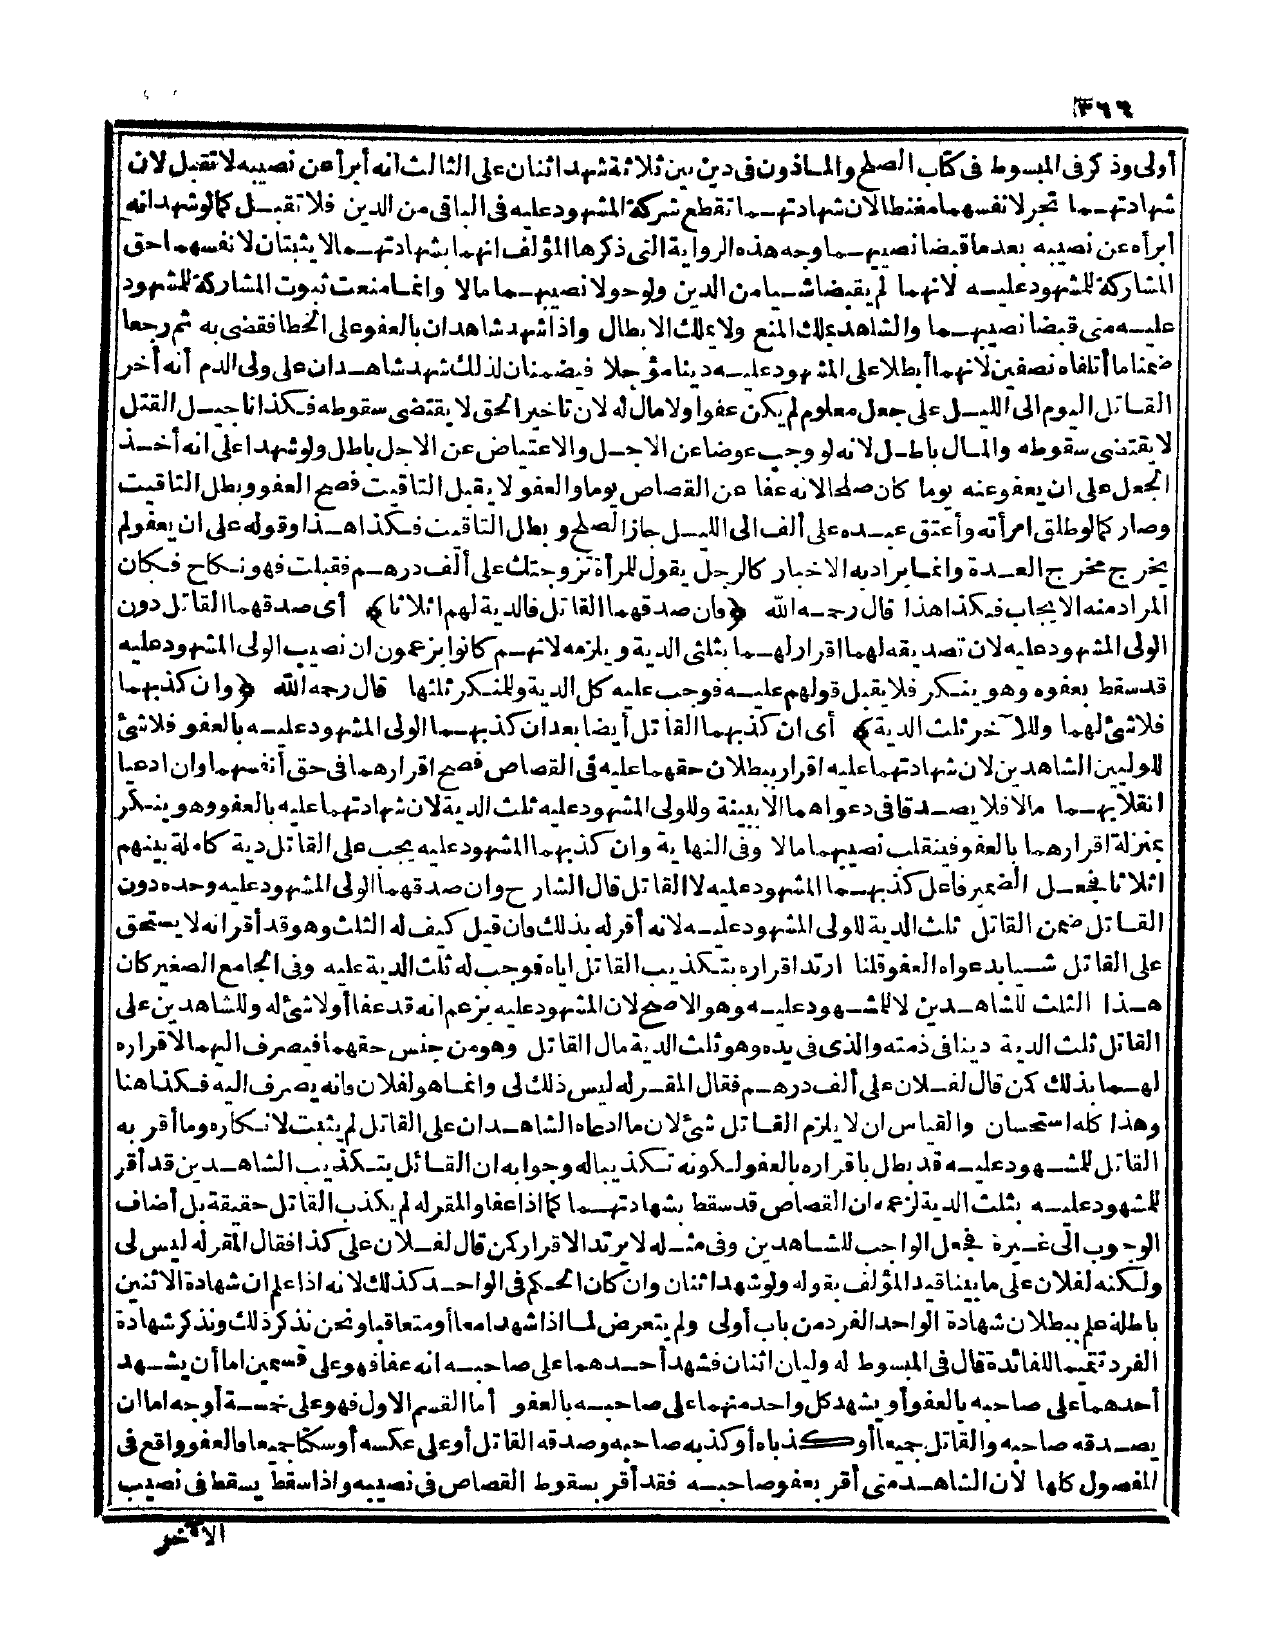 ٣٦٦
أولى وذكر في المبسوط في كتاب الصلح والمأذون في دين بين ثلاثة شهد اثنان على الثالث انه أبرأ عن نصيبه لا تقبل لان
شهادتهما تجر لانفسهما مغنما لان شهادتهما تقطع شركة المشهود عليه في الباقي من الدين فلا تقبل كما لو شهدا انه
أبرأه عن نصيبه بعد ما قبضا نصيبهما وجه هذه الرواية التي ذكرها المؤلف انهما بشهادتهما لا يثبتان لانفسهما حق
المشاركة للمشهود عليه لانهما لم يقبضا شيأ من الدين ولو حولا نصيبهما مالا وانما منعت ثبوت المشاركة للمشهود
عليه متى قبضا نصيبهما والشاهد يملك المنع ولا يملك الابطال واذا شهد شاهدان بالعفو على الخطا فقضى به ثم رجعا
ضمنا ما أتلفاه نصفين لانهما أبطلا على المشهود عليه دينا مؤجلا فيضمنان لذلك شهد شاهدان على ولى الدم أنه أخر
القاتل اليوم الى الليل على جعل معلوم لم يكن عفوا ولا مال له لان تأخير الحق لا يقتضى سقوطه فكذا تأجيل القتل
لا يقتضى سقوطه والمال باطل لانه لو وجب عوضا عن الاجل والاعتياض عن الاجل باطل ولو شهدا على انه أخذ
الجعل على ان يعفو عنه يوما كان صلحا لانه عفا عن القصاص يوما والعفو لا يقبل التاقيت فصح العفو وبطل التاقيت
وصار كما لو طلق امرأته وأعتق عبده على ألف الى الليل جاز الصلح وبطل التاقيت فكذا هذا وقوله على ان يعفو لم
يخرج مخرج العدة وانما يراد به الاخبار كالرجل يقول للمرأة تزوجتك على ألف درهم فقبلت فهو نكاح فكان
المراد منه الايجاب فكذا هذا قال رحمه الله ﴿وان صدقهما القاتل فالدية لهم اثلاثا﴾ أى صدقهما القاتل دون
الولى المشهود عليه لان تصديقه لهما اقرار لهما بثلثى الدية ويلزمه لانهم كانوا يزعمون ان نصيب الولى المشهود عليه
قد سقط بعفوه وهو ينكر فلا يقبل قولهم عليه فوجب عليه كل الدية وللمنكر ثلثها قال رحمه الله ﴿وان كذبهما
فلا شئ لهما وللآخر ثلث الدية﴾ أى ان كذبهما القاتل أيضا بعد ان كذبهما الولى المشهود عليه بالعفو فلا شئ
للوليين الشاهدين لان شهادتهما عليه اقرار ببطلان حقهما عليه في القصاص فصح اقرارهما في حق أنفسهما وان ادعيا
انقلابهما مالا فلا يصدقا في دعواهما الا ببينة وللولى المشهود عليه ثلث الدية لان شهادتهما عليه بالعفو وهو ينكر
بمنزلة اقرارهما بالعفو فينقلب نصيبهما مالا وفى النهاية وان كذبهما المشهود عليه يجب على القاتل دية كاملة بينهم
اثلاثا فجعل الضمير فاعل كذبهما المشهود عليه لا القاتل قال الشارح وان صدقهما الولى المشهود عليه وحده دون
القاتل ضمن القاتل ثلث الدية للولى المشهود عليه لانه أقر له بذلك وان قيل كيف له الثلث وهو قد أقر انه لا يستحق
على القاتل شيأ بدعواه العفو قلنا ارتد اقراره بتكذيب القاتل اياه فوجب له ثلث الدية عليه وفى الجامع الصغير كان
هذا الثلث للشاهدين لا للمشهود عليه وهو الاصح لان المشهود عليه يزعم انه قد عفا أولا شئ له وللشاهدين على
القاتل ثلث الدية دينا في ذمته والذى في يده وهو ثلث الدية مال القاتل وهو من جنس حقهما فيصرف اليهما لاقراره
لهما بذلك كمن قال لفلان على ألف درهم فقال المقر له ليس ذلك لى وانما هو لفلان وانه يصرف اليه فكذا هنا
وهذا كله استحسان والقياس ان لا يلزم القاتل شئ لان ما ادعاه الشاهدان على القاتل لم يثبت لانكاره وما أقر به
القاتل للمشهود عليه قد بطل باقراره بالعفو لكونه تكذيبا له وجوابه ان القاتل بتكذيب الشاهدين قد أقر
للمشهود عليه بثلث الدية لزعمه ان القصاص قد سقط بشهادتهما كما اذا عفا والمقر له لم يكذب القاتل حقيقة بل أضاف
الوجوب الى غيره فجعل الواجب للشاهدين وفى مثله لا يرتد الاقرار كمن قال لفلان على كذا فقال المقر له ليس لى
ولكنه لفلان على ما بينا قيد المؤلف بقوله ولو شهد اثنان وان كان الحكم في الواحد كذلك لانه اذا علم ان شهادة الاثنين
باطلة علم ببطلان شهادة الواحد الفرد من باب أولى ولم يتعرض لما اذا شهدا معا أو متعاقبا ونحن نذكر ذلك ونذكر شهادة
الفرد تتميما للفائدة قال في المبسوط له وليان اثنان فشهد أحدهما على صاحبه انه عفا فهو على قسمين اما أن يشهد
أحدهما على صاحبه بالعفو أو يشهد كل واحد منهما على صاحبه بالعفو أما القسم الاول فهو على خمسة أوجه اما ان
يصدقه صاحبه والقاتل جميعا أو كذباه أو كذبه صاحبه وصدقه القاتل أو على عكسه أو سكتا جميعا والعفو واقع في
الفصول كلها لان الشاهد متى أقر بعفو صاحبه فقد أقر بسقوط القصاص في نصيبه واذا سقط يسقط في نصيب
الآخر